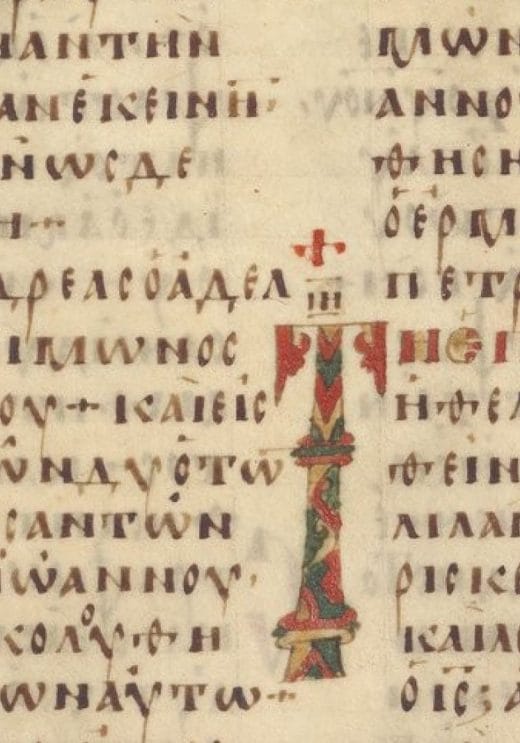 ΝΑΝΤΗΝ
ΑΝΕΚΕΙΝΗ
ΝΩϹΔΕ
Η+
ΔΡΕΑϹὉἈΔΕΛ
ΙΜΩΝΟϹ
ΟΥ+ΚΑΙΕΙϹ
ΩΝΔΥΟΤΩ
ϹΑΝΤΩΝ
ΙΩΑΝΝΟΥ·
ΚΟΛΟΥΘΗ
ΩΝΑΥΤΩ+
ΜΩΝ
ΑΝΝΟ
ΘΗϹΗ
ὉΕΡΜ
ΠΕΤΡ
ΤΗΕΠ
ΗΘΕΛ
ΘΕΙΝ
ΛΙΛΑΙ
ΡΙϹΚΕ
ΚΑΙΛΕ
ΟΙϹ:Α